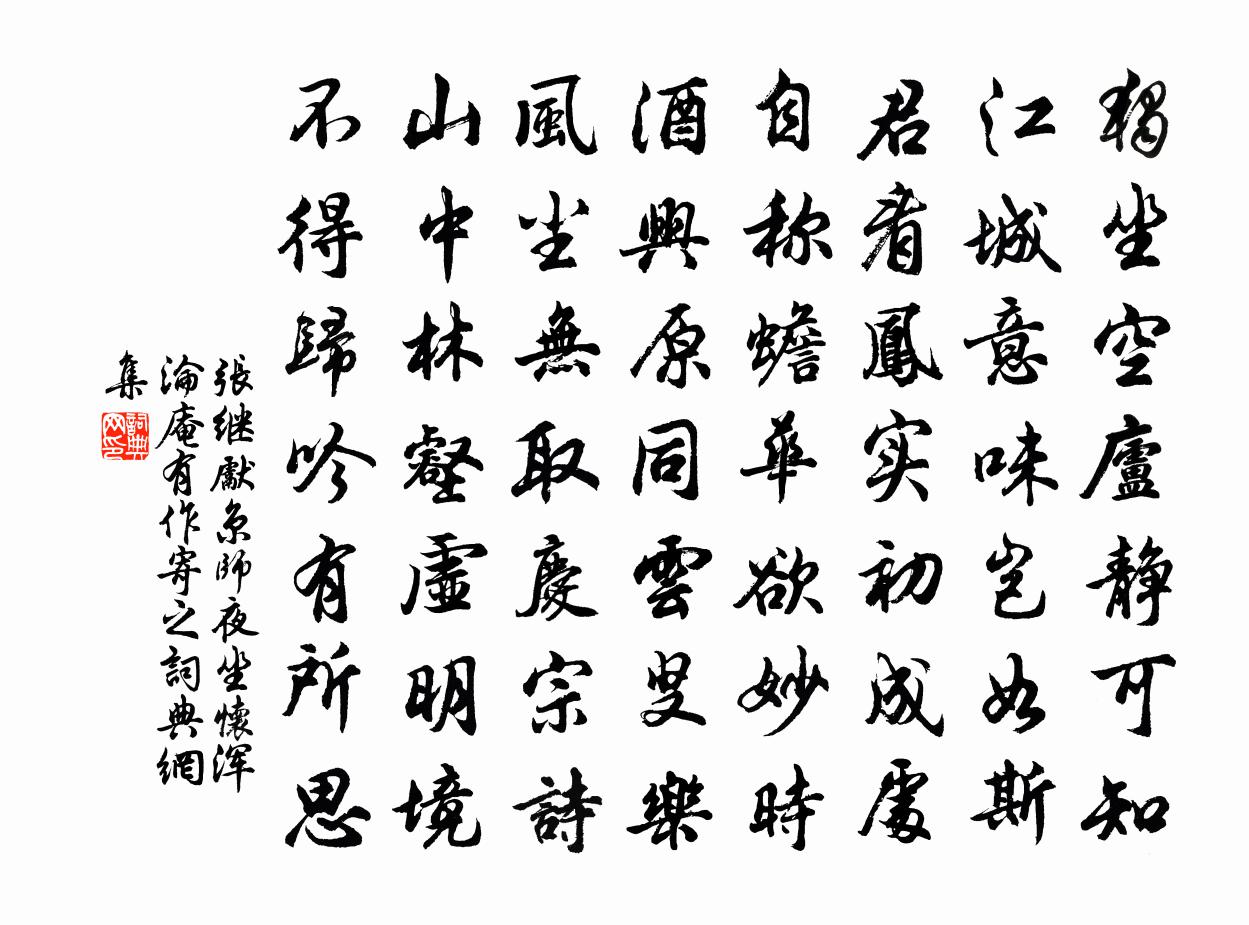 獨坐空廬靜可知
江城意味豈如斯
君看鳳实初成處
自称蟾華欲妙時
酒興原同雲叟樂
風尘無取慶宗詩
山中林壑虛明境
不得歸吟有所思
張继獻京師夜坐懷浑
淪庵有作寄之詞典網
集